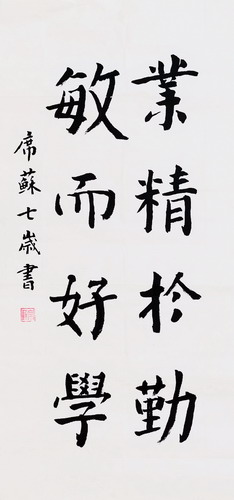 業精於勤
敏而好學
席蘇七歲書